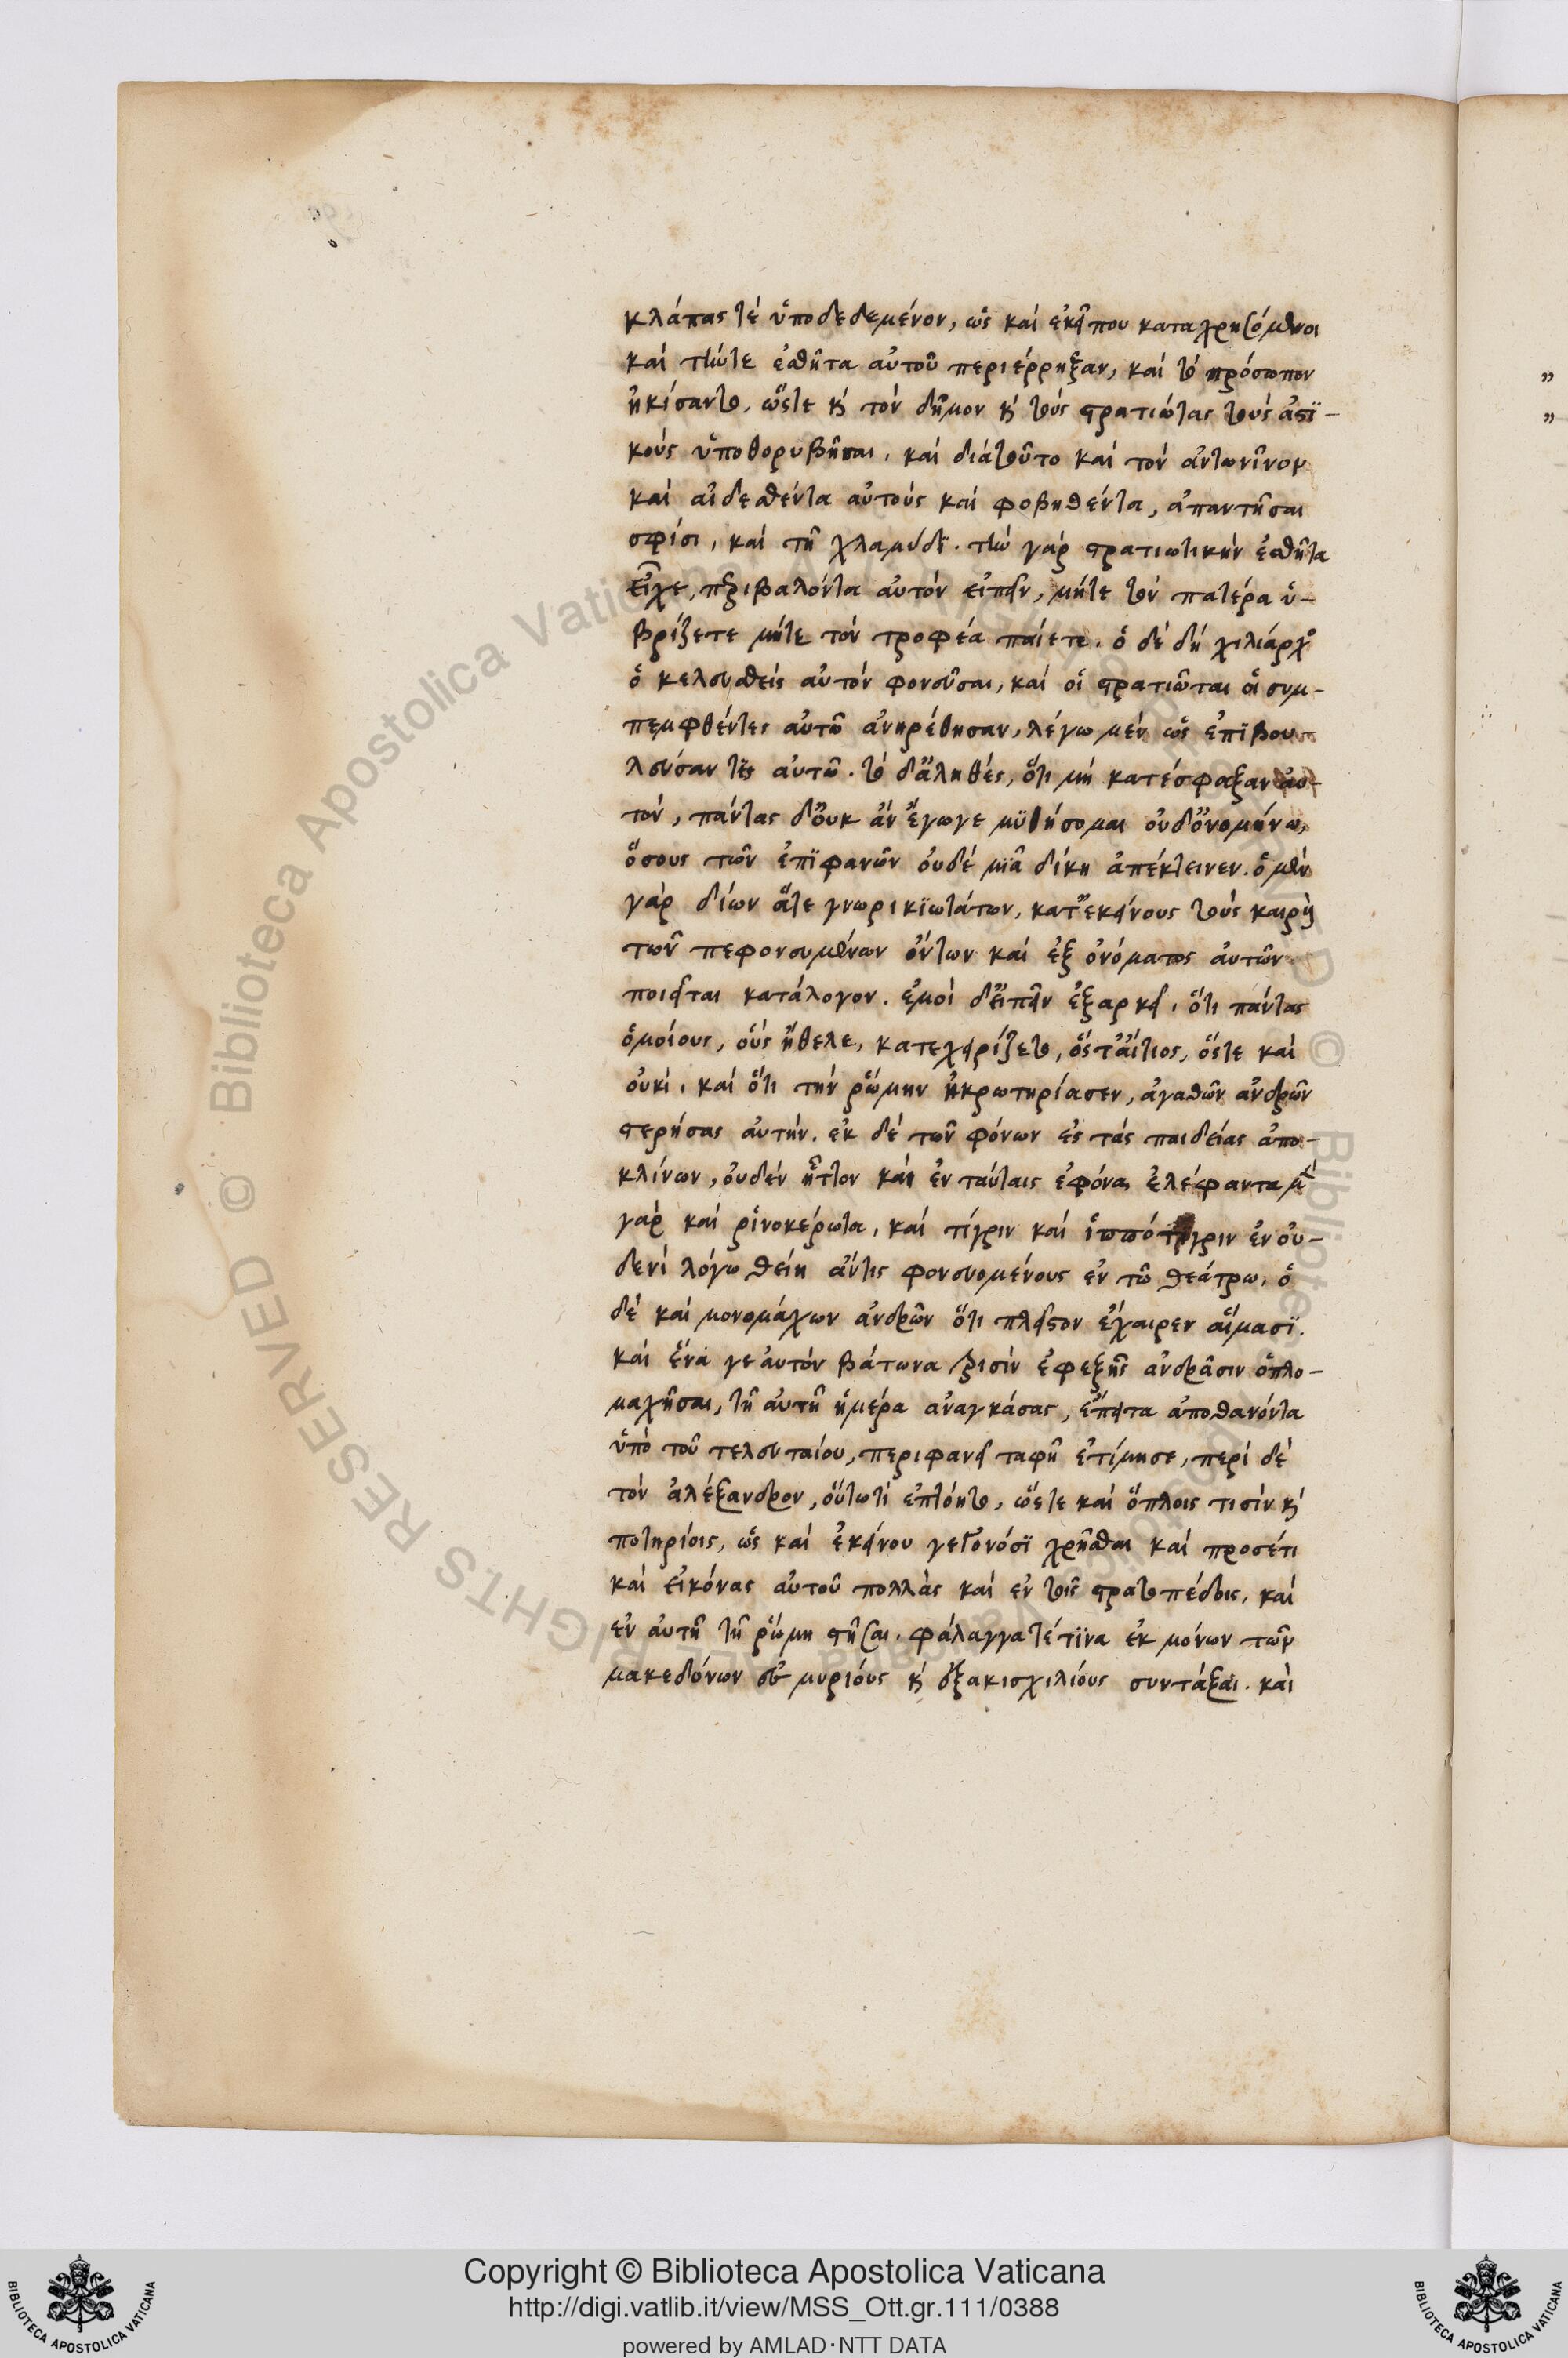 κλάπας τέ ὑποδεδεμένον, ὡς καί ἐκεῖ που καταχρησόμενοι
καί τήντε ἐσθῆτα αὐτοῦ περιέρρηξαν, καί τό πρόσωπον
ἠκίσαντο, ὥστε καί τόν δῆμον καί τούς στρατιώτας τούς ἀστϊ-
κούς ὑποθορυβῆσαι. καί διάτοῦτο καί τόν ἀντωνῖνον
καί αἰδεσθέντα αὐτούς καί φοβηθέντα, ἀπαντῆσαι
σφίσι, καί τῆ χλαμύδϊ. τήν γάρ στρατιωτικήν ἐσθῆτα
εἶχε, περιβαλόντα αὐτόν εἰπεῖν, μήτε τόν πατέρα ὑ-
βρίζετε μήτε τόν τροφέα παίετε. ὁ δέ δή χιλίαρχος
ὁ κελευσθείς αὐτόν φονεῦσαι, καί οἱ στρατιῶται οἱ συμ-
πεμφθέντες αὐτῶ ἀνηρέθησαν, λέγω μέν ὡς ἐπϊβου
λεύσαντες αὐτῶ. τό δ'ἀληθές, ὅτι μή κατέσφαξαν αὐ-
τόν, πάντας δ'οὐκ ἄν ἔγωγε μϋθήσομαι οὐδ'ὀνομήνω,
ὅσους τῶν ἐπϊφανῶν οὐδέ μϊᾶ δίκη ἀπέκτεινεν. ὁ μέν
γάρ δίων ἅτε γνωρικϊωτάτων, κατ'ἐκείνους τούς καιρούς
τῶν πεφονευμένων ὄντων καί ἐξ ὀνόματος αὐτῶν
ποιεῖται κατάλογον. ἐμοί δ'εἰπεῖν ἐξαρκεῖ, ὅτι πάντας
ὁμοίους, οὕς ἤθελε, κατεχειρίζετο, ὅς τ'αἴτιος, ὅςτε καί
οὐκί, καί ὅτι τήν ῥώμην ἠκρωτηρίασεν, ἀγαθῶν ἀνδρῶν
στερήσας αὐτήν. ἐκ δέ τῶν φόνων ἐς τάς παιδείας ἀπο-
κλίνων, οὐδέν ἧττον κάι ἐν ταύταις ἐφόνα, ἐλέφαντα μέν
γάρ καί ῥινοκέρωτα, καί τίγριν καί ἱππότιγριν ἐν οὐ-
δενί λόγω θείη ἄντις φονευομένους ἐν τῶ θεάτρω, ὁ
δέ καί μονομάχων ἀνδρῶν ὅτι πλεῖστον ἔχαιρεν αἵμασϊ.
καί ἕνα γε αὐτόν βάτωνα τρισίν ἐφεξῆς ἀνδρᾶσιν ὁπλο-
μαχῆσαι, τῆ αὐτῆ ἡμέρα ἀναγκάσας, ἔπειτα ἀποθανόντα
ὑπό τοῦ τελευταίου, περιφανεῖ ταφῆ ἐτίμησε, περί δέ
τόν ἀλέξανδρον, οὕτωτί ἐπτόητο, ὥστε καί ὅπλοις τισίν καί
ποτηρίοις, ὡς καί ἐκείνου γεγονόσϊ χρῆσθαι καί προσέτι
καί εἰκόνας αὐτοῦ πολλάς καί ἐν τοῖς στρατοπέδοις, καί
ἐν αὐτῆ τῆ ῥώμη στῆσαι. φάλαγγα τέ τϊνα ἐκ μόνων τῶν
μακεδόνων ἐς μυριόυς καί ἑξακισχιλίους συντάξαι. καί
Copyright © Biblioteca Apostolica Vaticana
http://digi.vatlib.it/view/MSS_Ott.gr.111/0388
powered by AMLAD·NTT DATA